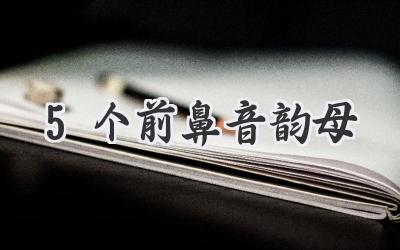 5 个前鼻音韵母